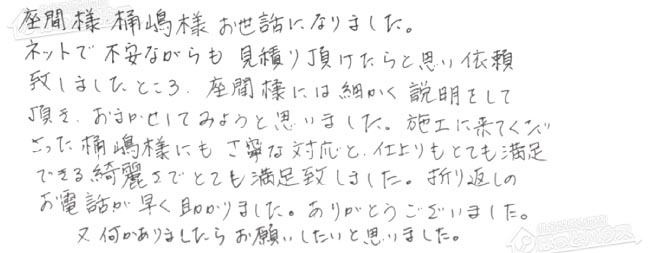 座間様 桶嶋様 お世話になりました。
ネットで不安ながらも見積り頂けたらと思い依頼
致しましたところ、座間様には細かく説明をして
頂き、おまかせしてみようと思いました。施工に来てくだ
さった桶嶋様にも丁寧な対応と、仕上りもとても満足
できる綺麗さでとても満足致しました。折り返しの
お電話が早く助かりました。ありがとうございました。
又何かありましたらお願いしたいと思いました。